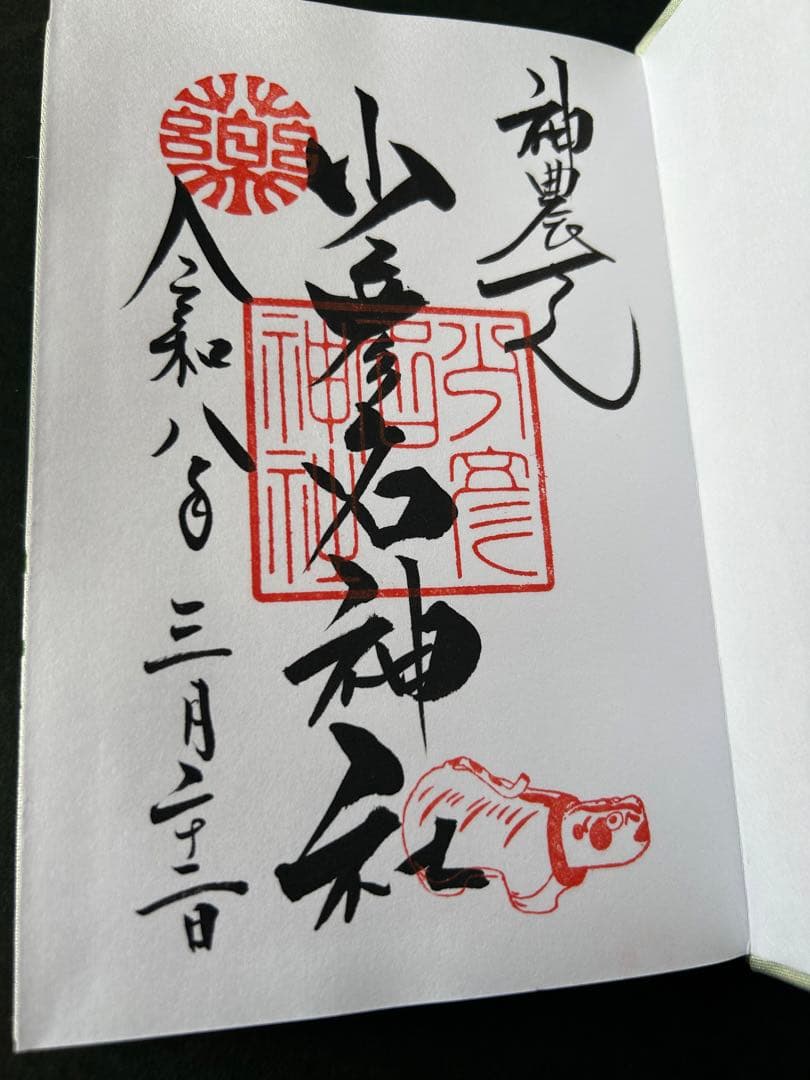 神農さん
少彦名神社
少彦名神社
薬
令和八年三月二十二日